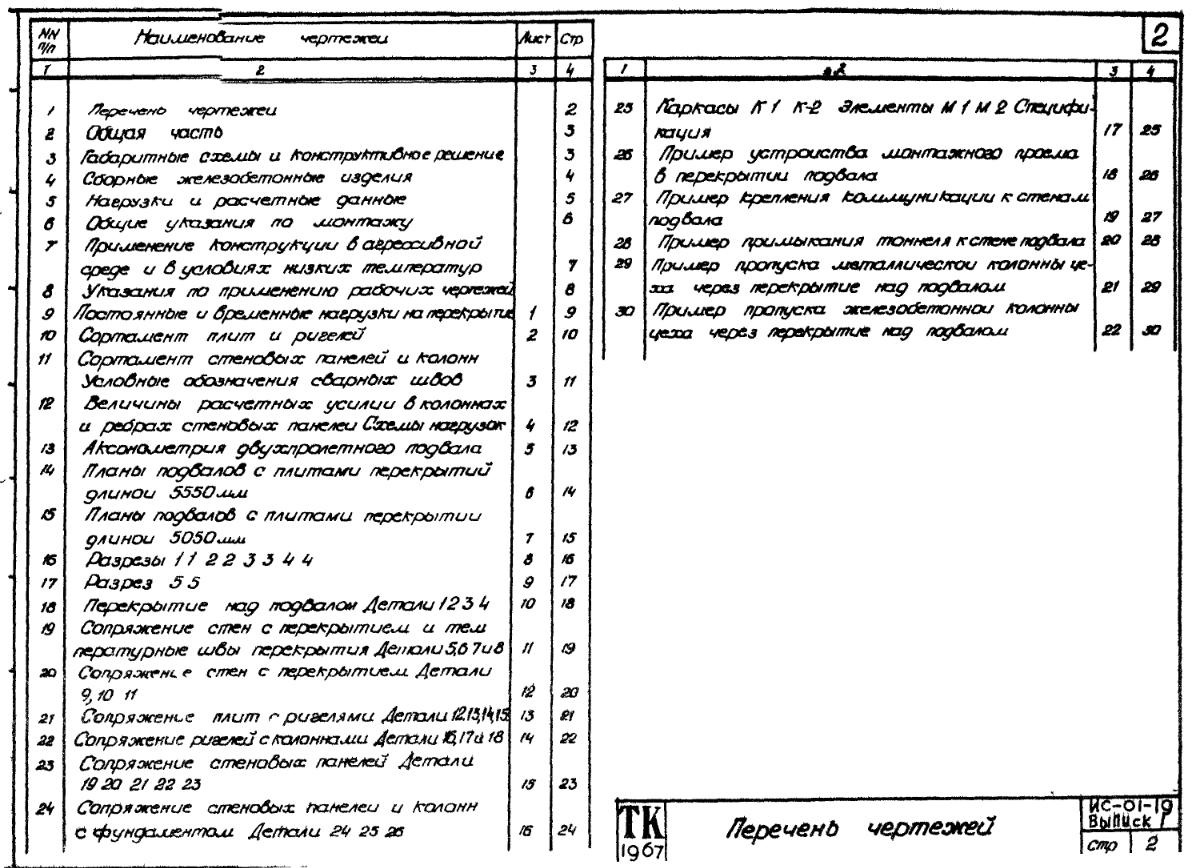 2
NN п/п Наименование чертежей Лист Стр
1 2 3 4
1 Перечень чертежей 2
2 Общая часть 3
3 Габаритные схемы и конструктивное решение 3
4 Сборные железобетонные изделия 4
5 Нагрузки и расчетные данные 5
6 Общие указания по монтажу 6
7 Применение конструкции в агрессивной
среде и в условиях низких температур 7
8 Указания по применению рабочих чертежей 8
9 Постоянные и временные нагрузки на перекрытие 1 9
10 Сортамент плит и ригелей 2 10
11 Сортамент стеновых панелей и колонн
Условные обозначения сварных швов 3 11
12 Величины расчетных усилии в колоннах
и ребрах стеновых панелеи Схемы нагрузок 4 12
13 Аксонометрия двухпролетного подвала 5 13
14 Планы подвалов с плитами перекрытий
длинои 5550 мм 6 14
15 Планы подвалов с плитами перекрытии
длинои 5050 мм 7 15
16 Разрезы 1 1 2 2 3 3 4 4 8 16
17 Разрез 5 5 9 17
18 Перекрытие над подвалом Детали 1 2 3 4 10 18
19 Сопряжение стен с перекрытием и тем
пературные швы перекрытия Детали 5,6 7 и 8 11 19
20 Сопряжение стен с перекрытием Детали
9, 10 11 12 20
21 Сопряжение плит с ригелями Детали 12,13,14,15 13 21
22 Сопряжение ригелей с колоннами Детали 16,17 и 18 14 22
23 Сопряжение стеновых панелей Детали
19 20 21 22 23 15 23
24 Сопряжение стеновых панелеи и колонн
с фундаментом Детали 24 25 26 16 24
1 2 3 4
25 Каркасы К 1 К-2 Элементы М 1 М 2 Специфи-
кация 17 25
26 Пример устроиства монтажного проема
в перекрытии подвала 18 26
27 Пример крепления коммуникации к стенам
подвала 19 27
28 Пример примыкания тоннеля к стене подвала 20 28
29 Пример пропуска металлическои колонны це-
ха через перекрытие над подвалом 21 29
30 Пример пропуска железобетоннои колонны
цеха через перекрытие над подвалом 22 30
ТК
1967
Перечень чертежей
ИС-01-19
Выпуск 1
Стр 2